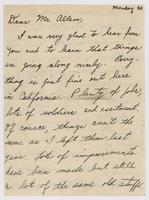 Monday 20
Dear Mr. Allen,
I was very glad to hear from
you and to learn that things
are going along nicely. Every-
thing is just fine out here
in California. Plenty of jobs,
lots of soldiers and excitement.
Of course, things aren't the
same as I left them last
year. Lots of improvements
have been made but still
a lot of the same old stuff